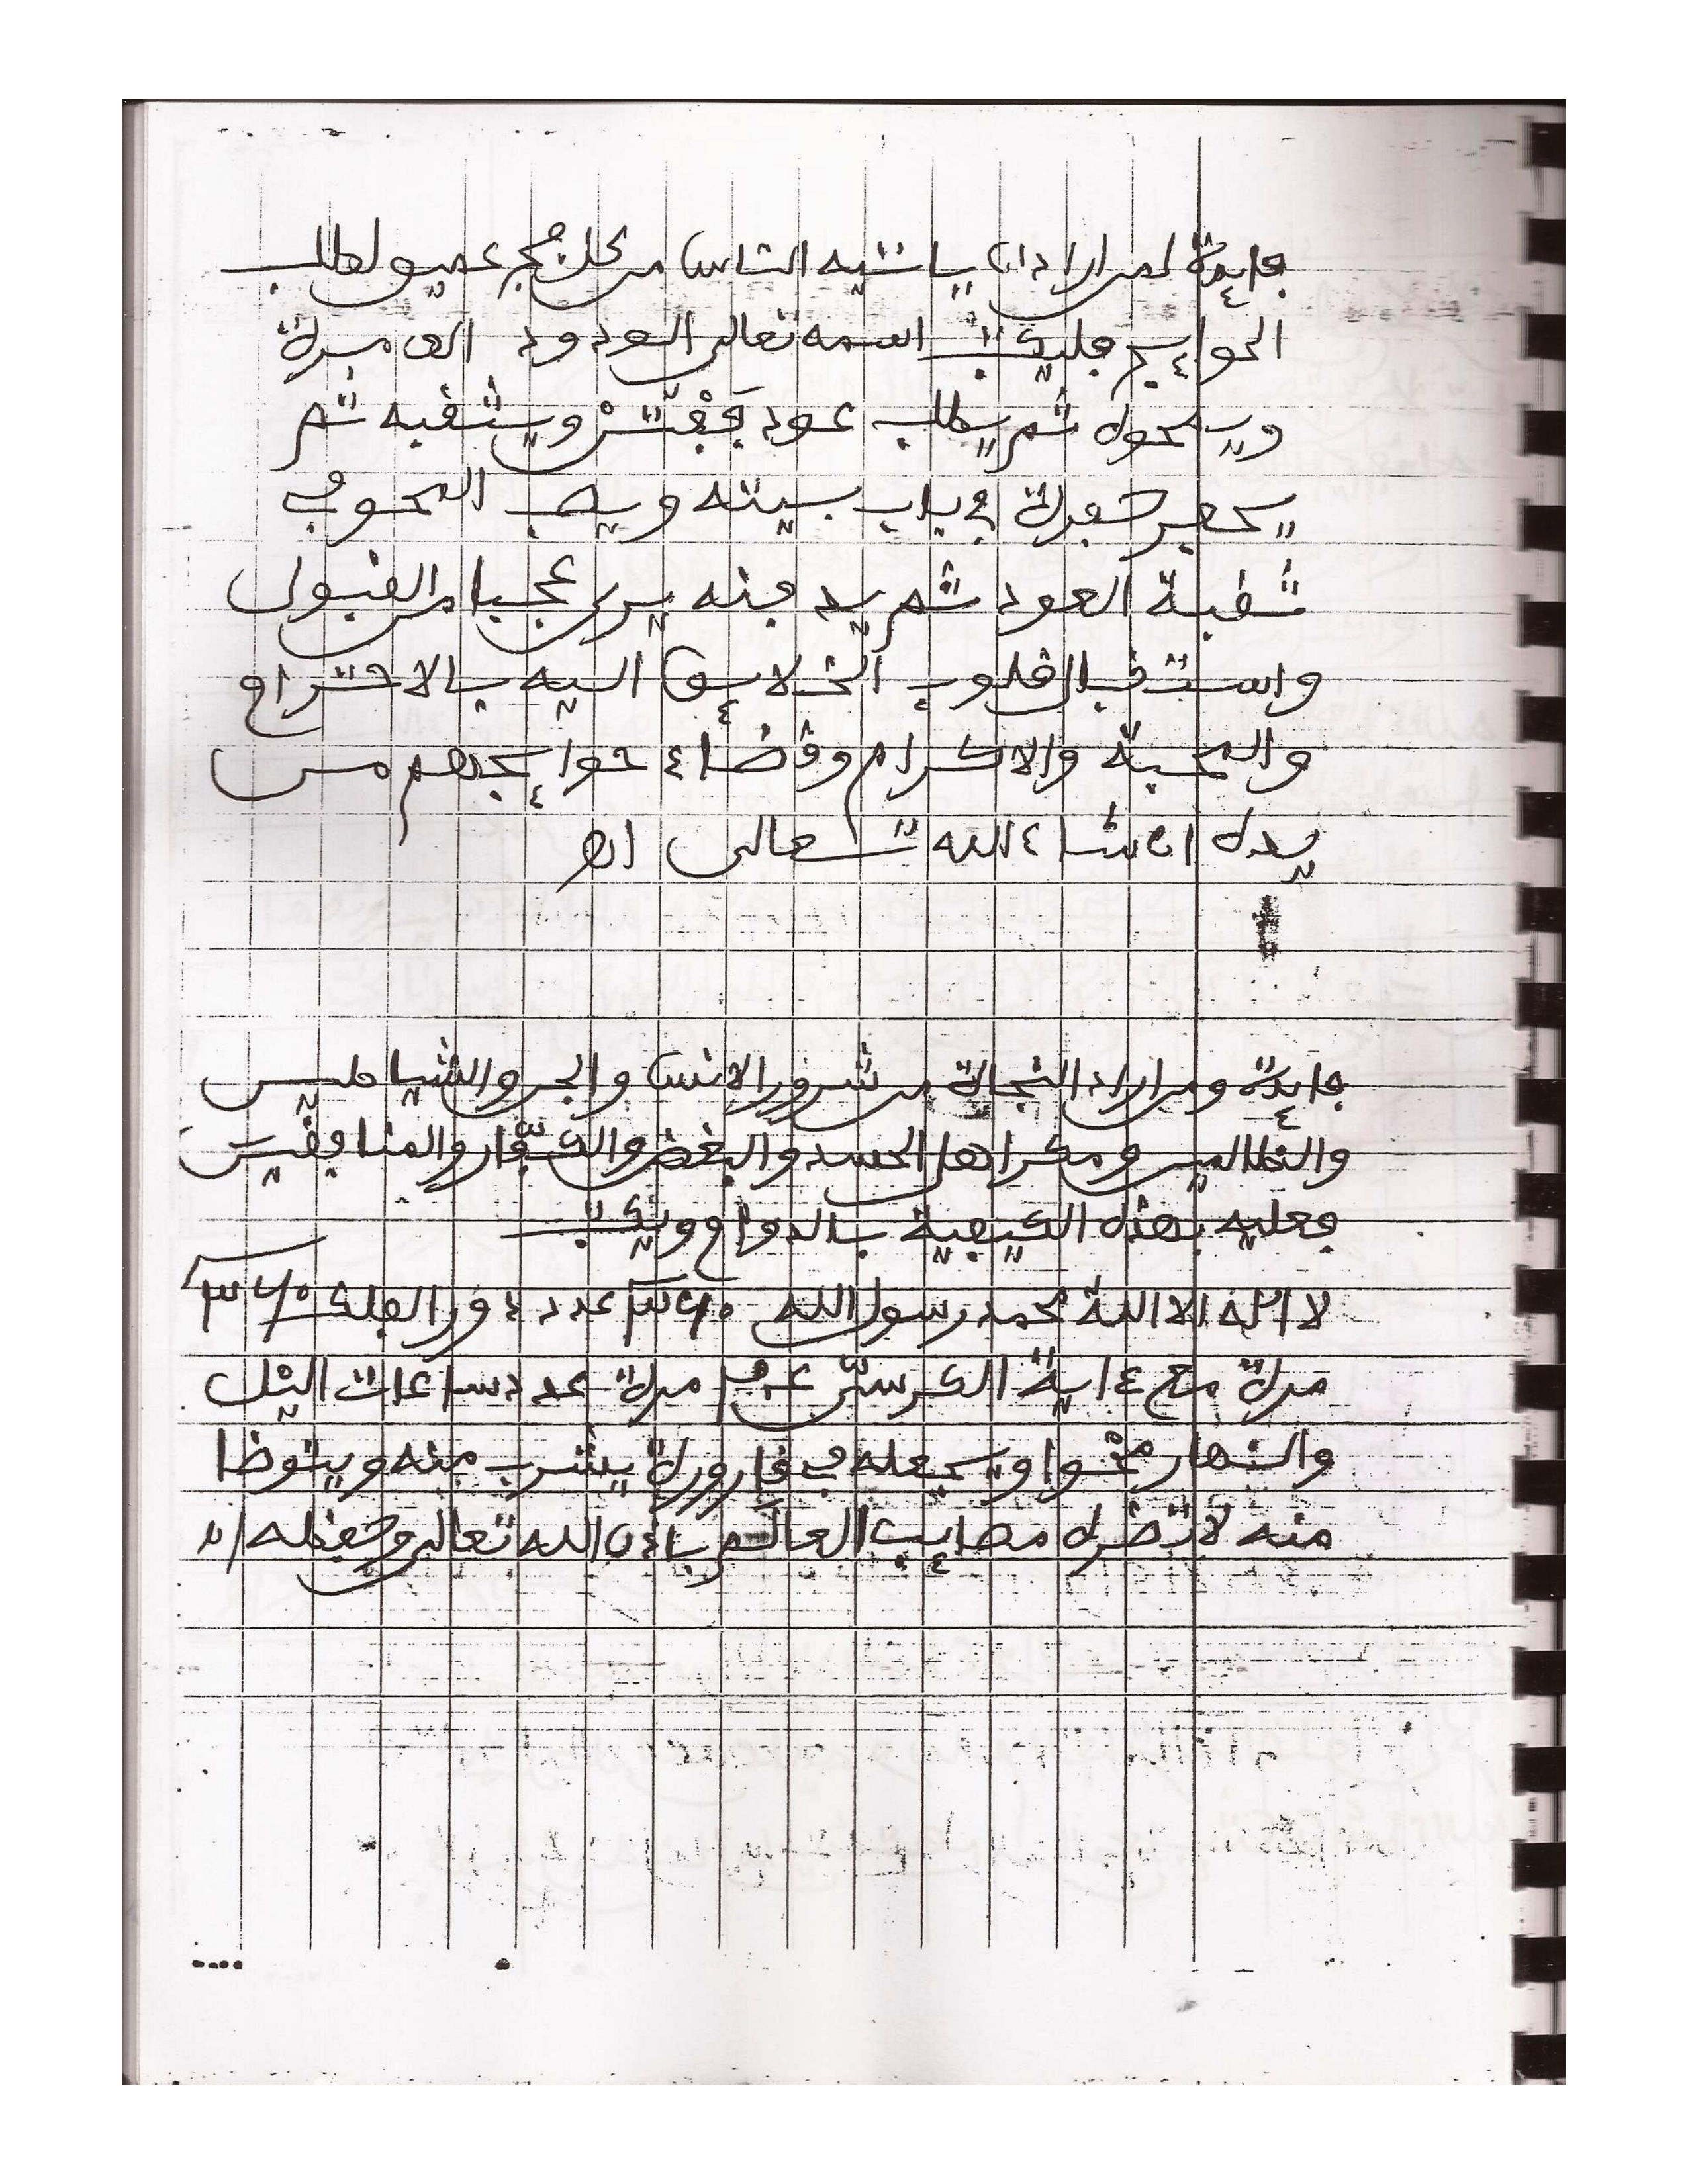 فايدة لمن اراد ان ياتيه الناس من كل فج عميق لطلب
الحوايج فليكتب اسمه تعالى الودود الف مرة
ويمحوه ثم يطلب عود ويثقبه ثم
يحفر حفرة في باب بيته ويصب المحو في
ثقبة العود ثم يدفنه يرى عجبا من القبول
واستقبال قلوب الخلايق اليه بالاحترام
والمحبة والاكرام وقضاء حوايجهم من
يده ان شاء الله تعالى اه
فايدة ومن اراد النجاة من شرور الانس والجن والشياطين
والظالمين ومكر اهل الحسد والبغض والكفّار والمنافقين
فعليه بهذه الكيفية بالدوام ويكتب
لا اله الا الله محمد رسول الله ٣٦٠ عدد دور الفلك ٣٦٠
مرة مع ءاية الكرسيّ مرة عدد ساعات اليل
والنهار محوا ويجعله في قارورة يشرب منه ويتوضا
منه لا تضره مصايب العالم باذن الله تعالى وحفظه اه